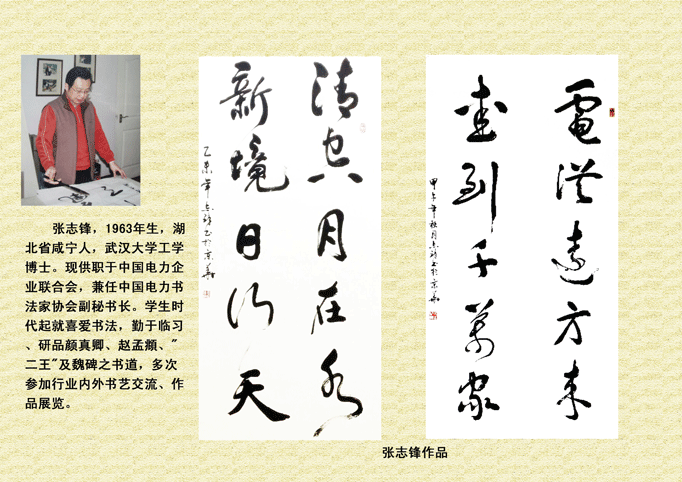 张志锋，1963年生，湖
北省咸宁人，武汉大学工学
博士。现供职于中国电力企
业联合会，兼任中国电力书
法家协会副秘书长。学生时
代起就喜爱书法，勤于临习
、研品颜真卿、赵孟頫、"
二王"及魏碑之书道，多次
参加行业内外书艺交流、作
品展览。
清空月在水
新境日行天
乙未年志锋书于京华
電從遠方来
愛到千萬家
甲午年秋月志锋书于京華
张志锋作品